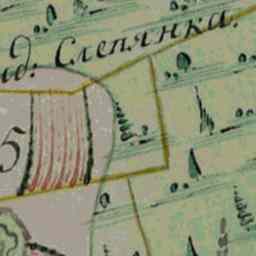 д: Слепянка.
5